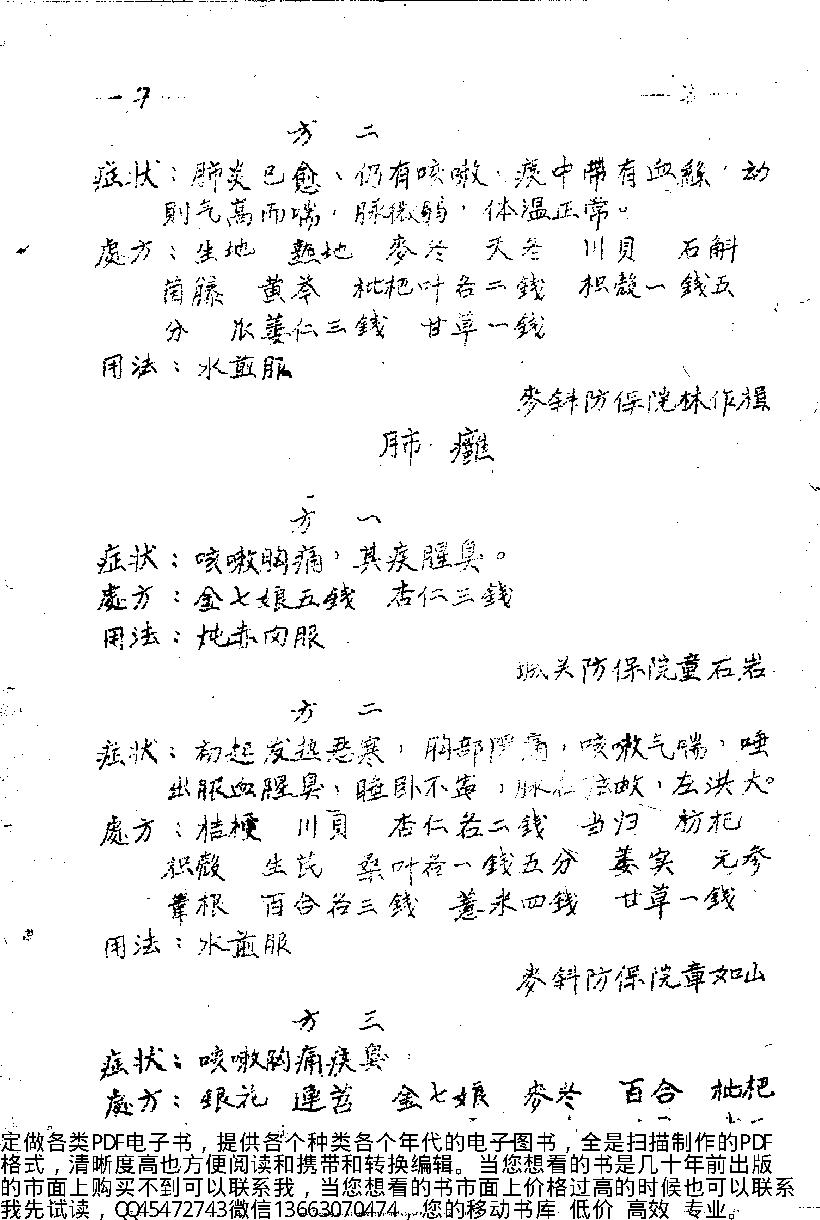 方 二
症状：肺炎已愈、仍有咳嗽、痰中带有血絲，动
則气高而喘，脉微弱，体温正常。
處方：生地 熟地 麥冬 天冬 川貝 石斛
黄芩 枇杷叶各二錢 枳殼一錢五
分 蒌仁三錢 甘草一錢
用法：水煎服
麥斜防保院林作
肺 癰
方 一
症状：咳嗽胸痛，其痰腥臭。
處方：金七娘五錢 杏仁三錢
用法：炖赤肉服
城关防保院童石岩
方 二
症状：初起发热恶寒，胸部 痛，咳嗽气喘，唾
出脓血腥臭，睡卧不 ，脉右 数，左洪大。
處方：桔梗 川貝 杏仁各二錢 当归 杞
枳殼 生芪 桑叶各一錢五分 蒌实 元参
葦根 百合各三錢 薏米四錢 甘草一錢
用法：水煎服
麥斜防保院章如山
方 三
症状：咳嗽胸痛痰臭
處方：銀花 連 金七娘 麥冬 百合 枇杷
定做各类PDF电子书，提供各个种类各个年代的电子图书，全是扫描制作的PDF
格式，清晰度高也方便阅读和携带和转换编辑。当您想看的书是几十年前出版
的市面上购买不到可以联系我，当您想看的书市面上价格过高的时候也可以联系
我先试读，QQ45472743微信13663070474，您的移动书库 低价 高效 专业。